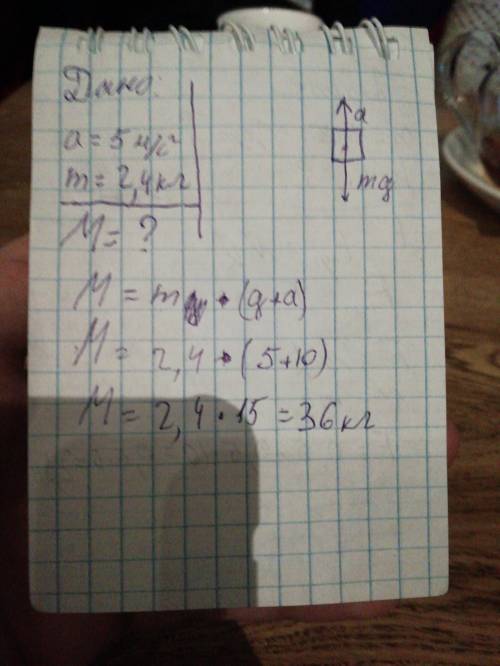 Дано:
a = 5 м/с²
m = 2,4 кг
M = ?
a
mg
M = m • (g+a)
M = 2,4 • (5+10)
M = 2,4 • 15 = 36 кг